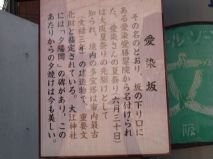 愛染坂
その名のとおり、坂の下り口に
ある愛染堂勝鬘院から名付けられ
た。愛染さんの夏祭(六月三十日)
は大阪夏祭りの先駆けとして
知られ、境内の多宝塔は市内最古
の建造物で重要文
化財に指定されている。大江神社
には「夕陽岡」の碑があり、この
あたりからの夕焼けは今も美しい。
阪